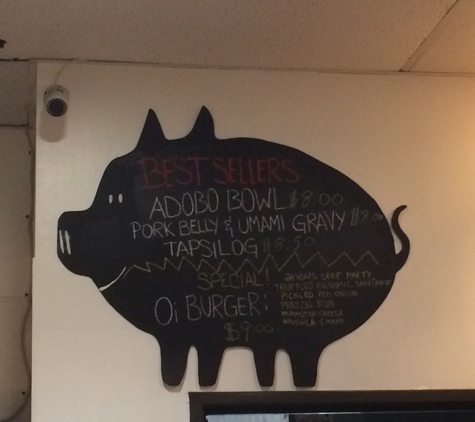 BEST SELLERS
ADOBO BOWL $8.00
PORK BELLY & UMAMI GRAVY $8.00
TAPSILOG $8.50
SPECIAL!
Oi BURGER:
$9.00
ANGUS BEEF PATTY
TRUFFLED BALSAMIC
PICKLED RED ONION
PRETZEL BUN
ARUGULA & MAYO